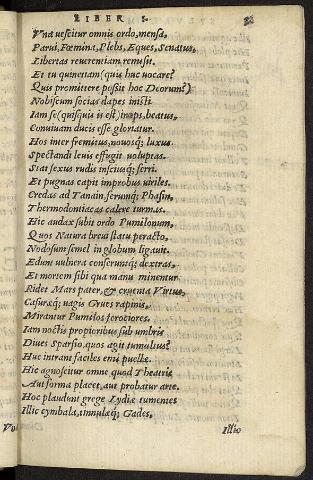 LIBER I.
Vna vescitur omnis ordo, mensa,
Parui, Fœmina, Plebs, Eques, Senatus,
Libertas reuerentiam remisit.
Et tu quinetiam (quis hoc vocare?
Quis promittere possit hoc Deorum?)
Nobiscum socias dapes inisti
Iam se (quisquis is est) inops, beatus,
Conuiuam ducis esse gloriatur.
Hos inter fremitus, nouosq; luxus
Spectandi leuis effugit voluptas.
Stat sexus rudis insciusq; ferri.
Et pugnas capit improbus viriles.
Credas ad Tanain, ferumq; Phasin,
Thermodontiacas calere turmas.
Hic audax subit ordo Pumilonum,
Quos Natura breui statu peracto,
Nodosum semel in globum ligauit.
Edunt vulnera conseruntq; dextras,
Et mortem sibi qua manu minentur
Ridet Mars pater, & cruenta Virtus,
Casuræq; vagis Grues rapinis,
Mirantur Pumilos ferociores.
Iam noctis propioribus sub umbris
Diues Sparsio, quos agit tumultus?
Huc intrant faciles emi puellæ.
Hic agnoscitur omne quod Theatris
Aut forma placet, aut probatur arte.
Hoc plaudunt grege Lydiæ tumentes
Illic cymbala, tinnulæq; Gades,
Illic